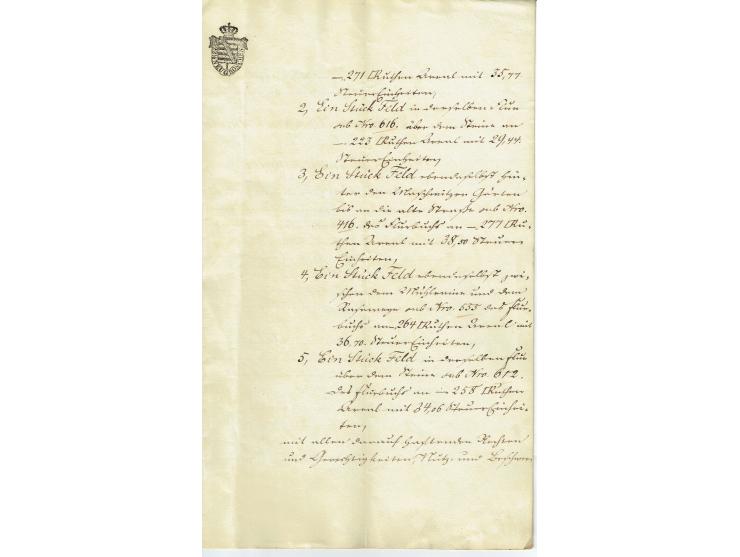 —271 □Ruthen Areal mit 35,77
Steuer Einheiten,
2, Ein Stück Feld in derselben Flur
sub Nro. 616. über dem Steine an
— 223 □Ruthen Areal mit 29,44.
Steuer Einheiten,
3, Ein Stück Feld ebendaselbst hin-
ter den Gärten
bis an die alte Straße sub Nro.
416. des Flurbuchs an — 277 □Ru-
then Areal mit 38,50 Steuer
Einheiten,
4, Ein Stück Feld ebendaselbst zwi-
schen dem Mühlraine und dem
sub Nro. 655 des Flur-
buchs an — 264 □Ruthen Areal mit
36,70. Steuer Einheiten,
5, Ein Stück Feld in derselben Flur
über dem Steine sub Nro. 612.
des Flurbuchs an — 258 □Ruthen
Areal mit 34,06 Steuer Einhei-
ten,
mit allen darauf haftenden Rechten
und Gerechtigkeiten, Nutz- und Beschwer